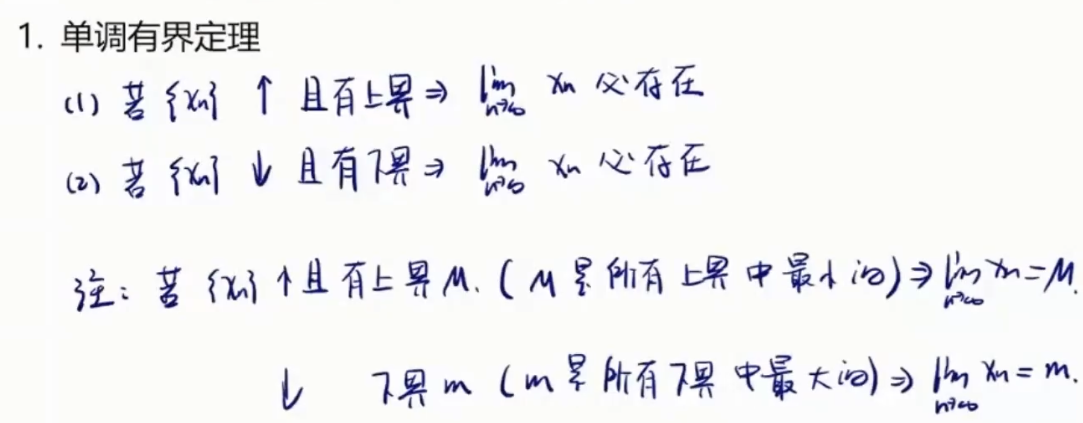 1. 单调有界定理
(1) 若 {xn} ↑ 且有上界 ⇒ lim n→∞ xn 必存在
(2) 若 {xn} ↓ 且有下界 ⇒ lim n→∞ xn 必存在
注: 若 {xn} ↑ 且有上界 M. (M 是所有上界中最小的) ⇒ lim n→∞ xn = M.
↓ 下界 m (m 是所有下界中最大的) ⇒ lim n→∞ xn = m.